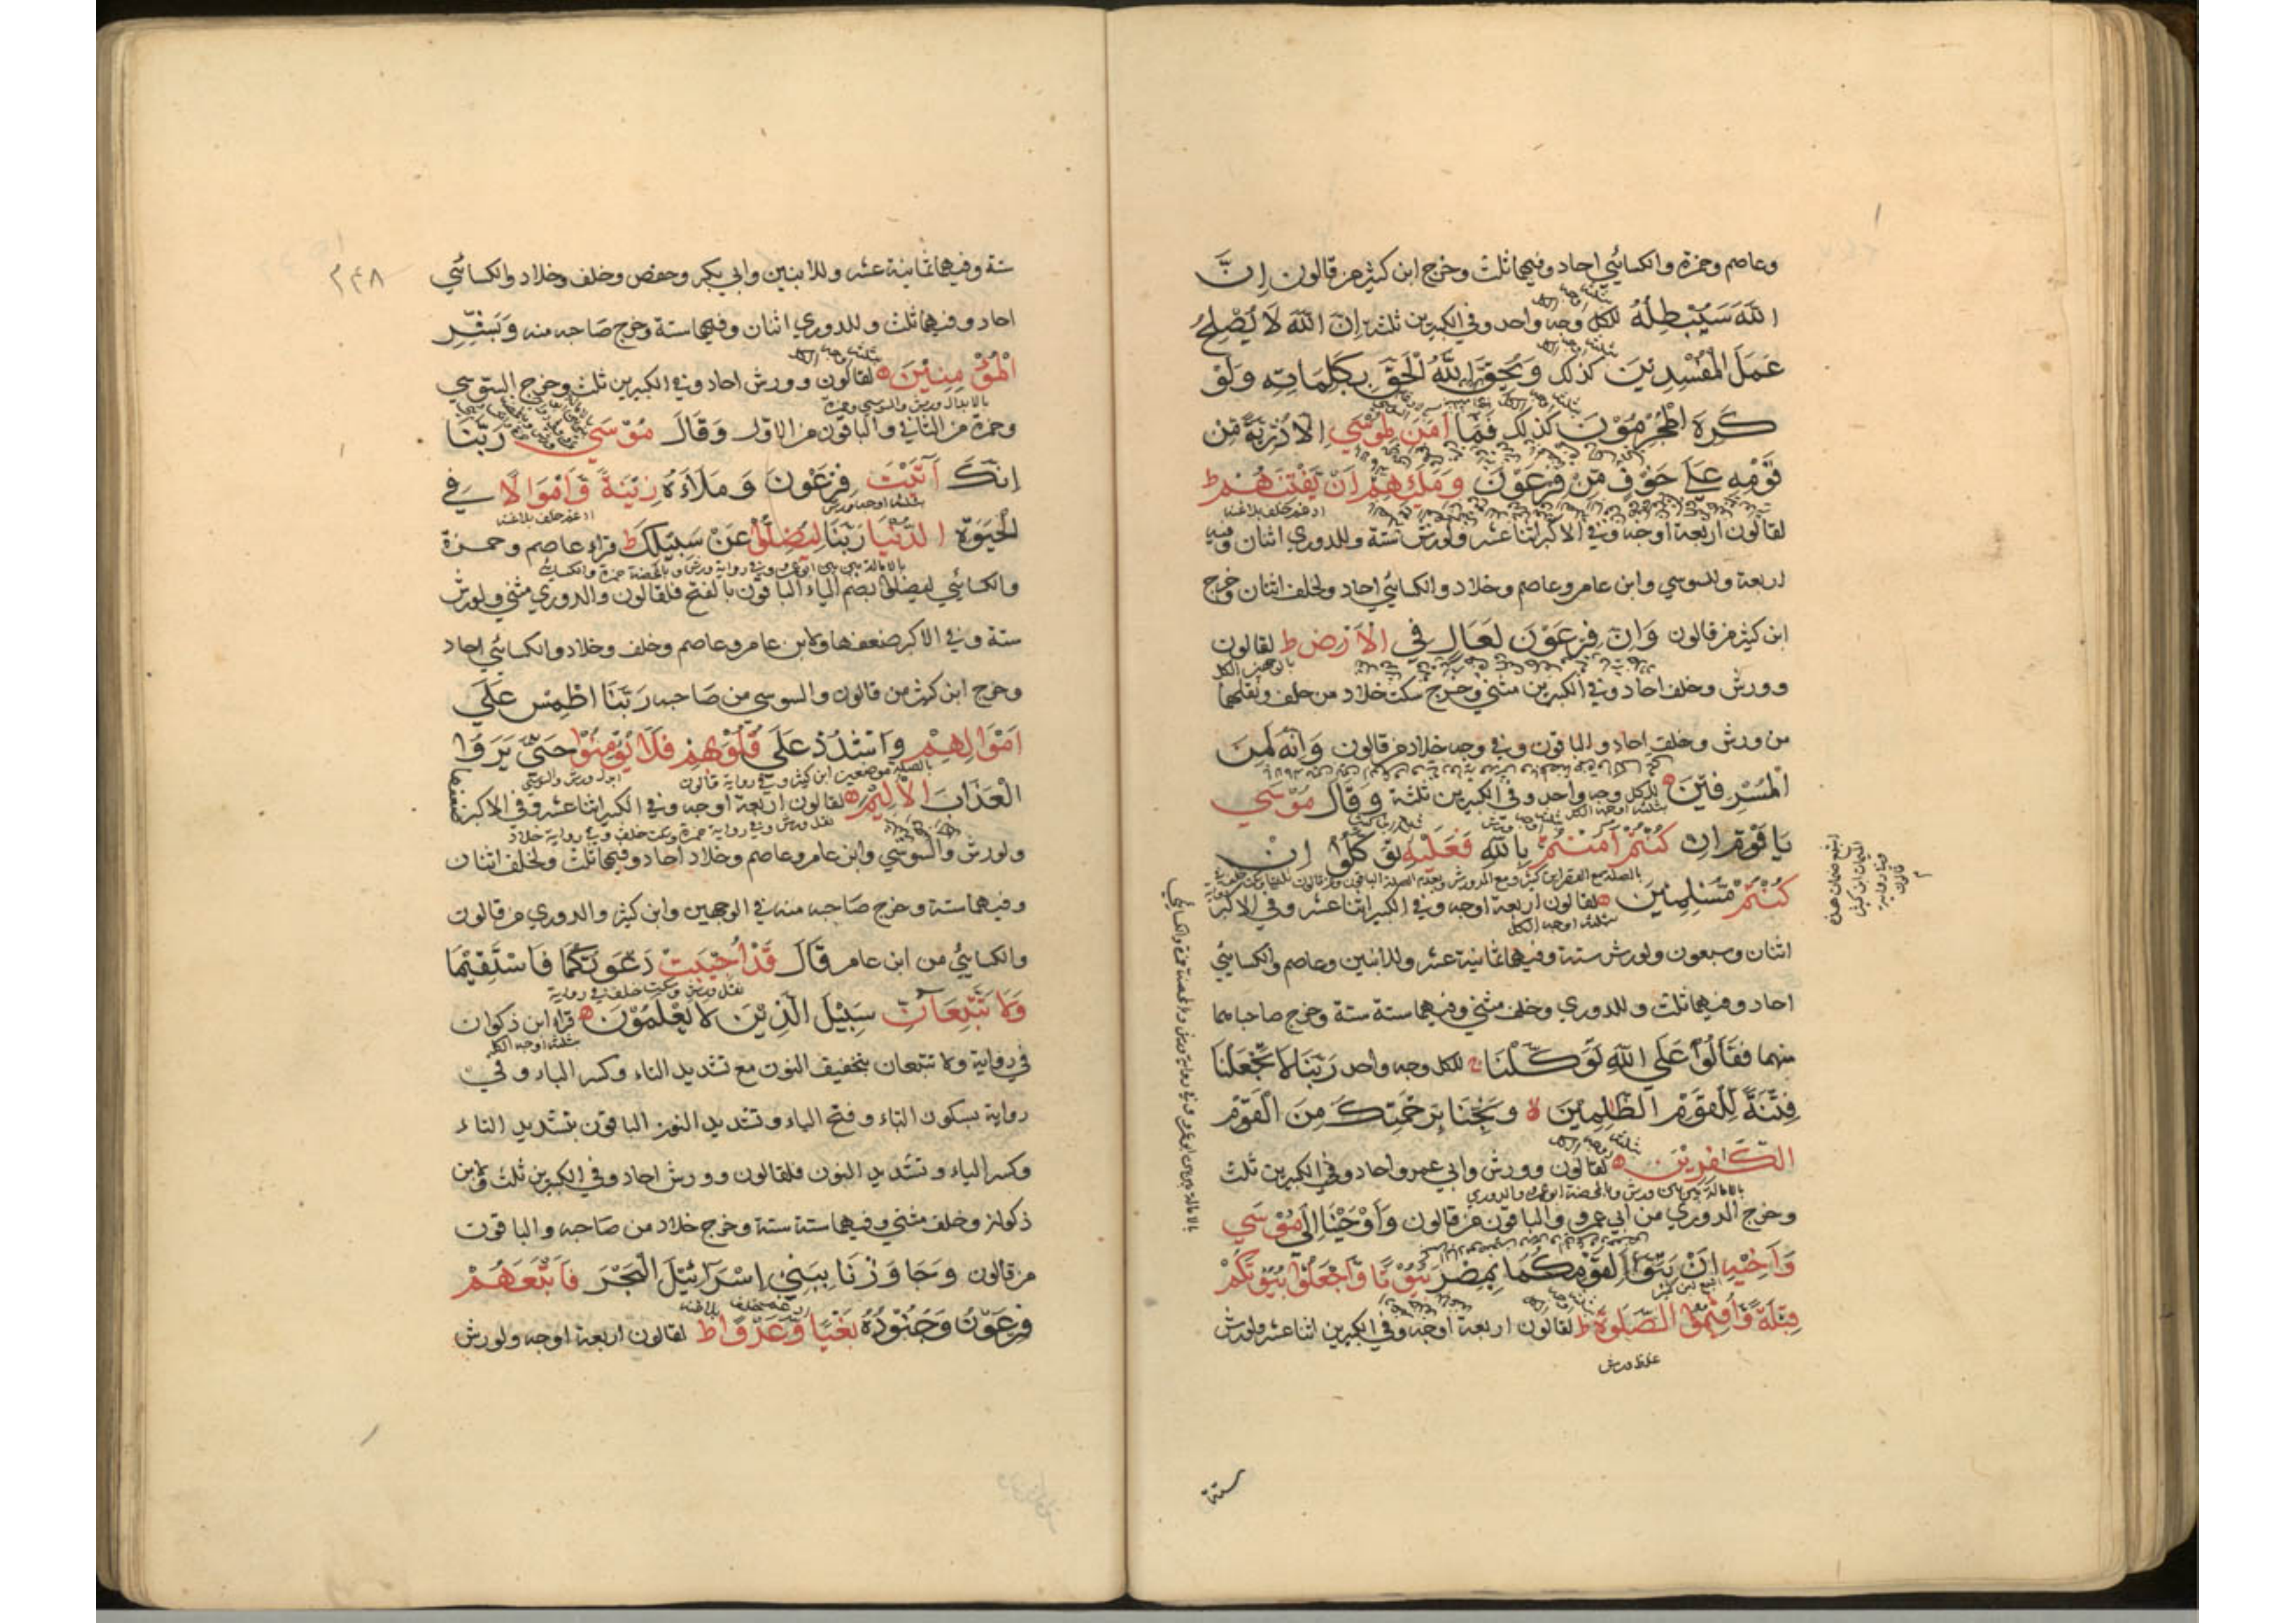 وعاصم وحمزة والكسائي احاد وفيهما ثلث وخرج ابن كثير من قالون اِنَّ
اللّٰهَ سَيُبْطِلُهُ للكل وجه واحد وفي الكبيرين ثلثة اِنَّ اللّٰهَ لَا يُصْلِحُ
عَمَلَ الْمُفْسِدِيْنَ كذلك وَيُحِقُّ اللّٰهُ الْحَقَّ بِكَلِمَاتِهِ وَلَوْ
كَرِهَ الْمُجْرِمُوْنَ كذلك فَمَا اٰمَنَ لِمُوْسٰي اِلَّا ذُرِّيَّةٌ مِّنْ
قَوْمِهِ عَلٰي خَوْفٍ مِّنْ فِرْعَوْنَ وَمَلَئِهِمْ اَنْ يَّفْتِنَهُمْ ط
لقالون اربعة اوجه وفي الاكبر اثنا عشر ولورش ستة وللدوري اثنان وفيه
اربعة وللسوسي وابن عامر وعاصم وخلاد والكسائي احاد ولخلف اثنان وخرج
ابن كثير من قالون وَاِنَّ فِرْعَوْنَ لَعَالٍ فِي الْاَرْضِ ط لقالون
وورش وخلف احاد وفي الكبيرين مثني وخرج سكت خلاد من خلف ونقلهما
من ورش وخلف احاد والباقون وفي وجه خلاد من قالون وَاِنَّهُ لَمِنَ
الْمُسْرِفِيْنَ ه للكل وجه واحد وفي الكبيرين ثلثة وَقَالَ مُوْسٰي
يَا قَوْمِ اِنْ كُنْتُمْ اٰمَنْتُمْ بِاللّٰهِ فَعَلَيْهِ تَوَكَّلُوْا اِنْ
كُنْتُمْ مُّسْلِمِيْنَ ه لقالون اربعة اوجه وفي الكبير اثنا عشر وفي الاكبر
ثلثة اوجه الكل
اثنان وسبعون ولورش ستة وفيهما ثمانية عشر وللابنين وعاصم والكسائي
احاد وفيهما ثلث وللدوري وخلف مثني وفيهما ستة ستة وخرج صاحباهما
منهما فَقَالُوْا عَلَي اللّٰهِ تَوَكَّلْنَا ج للكل وجه واحد رَبَّنَا لَا تَجْعَلْنَا
فِتْنَةً لِّلْقَوْمِ الظّٰلِمِيْنَ لا وَنَجِّنَا بِرَحْمَتِكَ مِنَ الْقَوْمِ
ثلثة اوجه الكل
الْكٰفِرِيْنَ ه لقالون وورش وابي عمرو احاد وفي الكبيرين ثلث
وخرج الدوري من ابي عمرو والباقون من قالون وَاَوْحَيْنَا اِلٰي مُوْسٰي
وَاَخِيْهِ اَنْ تَبَوَّاٰ لِقَوْمِكُمَا بِمِصْرَ بُيُوْتًا وَّاجْعَلُوْا بُيُوْتَكُمْ
قِبْلَةً وَّاَقِيْمُوا الصَّلٰوةَ ط لقالون اربعة اوجه وفي الكبيرين اثنا عشر ولورش
غلظ ورش
ستة
۲۴۸
ستة وفيهما ثمانية عشر وللابنين وابي بكر وحفص وخلف وخلاد والكسائي
احاد وفيهما ثلث وللدوري اثنان وفيهما ستة وخرج صاحبه منه وَبَشِّرِ
ثلثة اوجه الكل
الْمُؤْمِنِيْنَ ه لقالون وورش احاد وفي الكبيرين ثلث وخرج السوسي
بالابدال ورش والسوسي وحمزة
وحمزة من الثاني والباقون من الاول وَقَالَ مُوْسٰي رَبَّنَا
اِنَّكَ اٰتَيْتَ فِرْعَوْنَ وَمَلَاَهُ زِيْنَةً وَّاَمْوَالًا فِي
ثلثة اوجه ورش
ادغم خلف بلاغنة
الْحَيٰوةِ الدُّنْيَا رَبَّنَا لِيُضِلُّوْا عَنْ سَبِيْلِكَ ط قراء عاصم وحمزة
والكسائي ليضلوا بضم الياء الباقون بالفتح فلقالون والدوري مثني ولورش
ستة وفي الاكبر ضعفها ولابن عامر وعاصم وخلف وخلاد والكسائي احاد
وخرج ابن كثير من قالون والسوسي من صاحبه رَبَّنَا اطْمِسْ عَلٰي
اَمْوَالِهِمْ وَاشْدُدْ عَلٰي قُلُوْبِهِمْ فَلَا يُؤْمِنُوْا حَتّٰي يَرَوُا
ابدل ورش والسوسي
الْعَذَابَ الْاَلِيْمَ ه لقالون اربعة اوجه وفي الكبير اثنا عشر وفي الاكبر ضعفها
ولورش والسوسي وابن عامر وعاصم وخلاد احاد وفيهما ثلث ولخلف اثنان
وفيهما ستة وخرج صاحبه منه في الوجهين وابن كثير والدوري من قالون
والكسائي من ابن عامر قَالَ قَدْ اُجِيْبَتْ دَّعْوَتُكُمَا فَاسْتَقِيْمَا
نقل ورش وسكت خلف في رواية
وَلَا تَتَّبِعَانِّ سَبِيْلَ الَّذِيْنَ لَا يَعْلَمُوْنَ ه قراء ابن ذكوان
ثلثة اوجه الكل
في رواية ولا تتبعان بتخفيف النون مع تشديد التاء وكسر الباء وفي
رواية بسكون التاء وفتح الباء وتشديد النون الباقون بتشديد التاء
وكسر الباء وتشديد النون فلقالون وورش احاد وفي الكبيرين ثلث ولابن
ذكوان وخلف مثني وفيهما ستة ستة وخرج خلاد من صاحبه والباقون
من قالون وَجَاوَزْنَا بِبَنِيْ اِسْرَآئِيْلَ الْبَحْرَ فَاَتْبَعَهُمْ
ادغم خلف بلاغنة
فِرْعَوْنُ وَجُنُوْدُهُ بَغْيًا وَّعَدْوًا ط لقالون اربعة اوجه ولورش